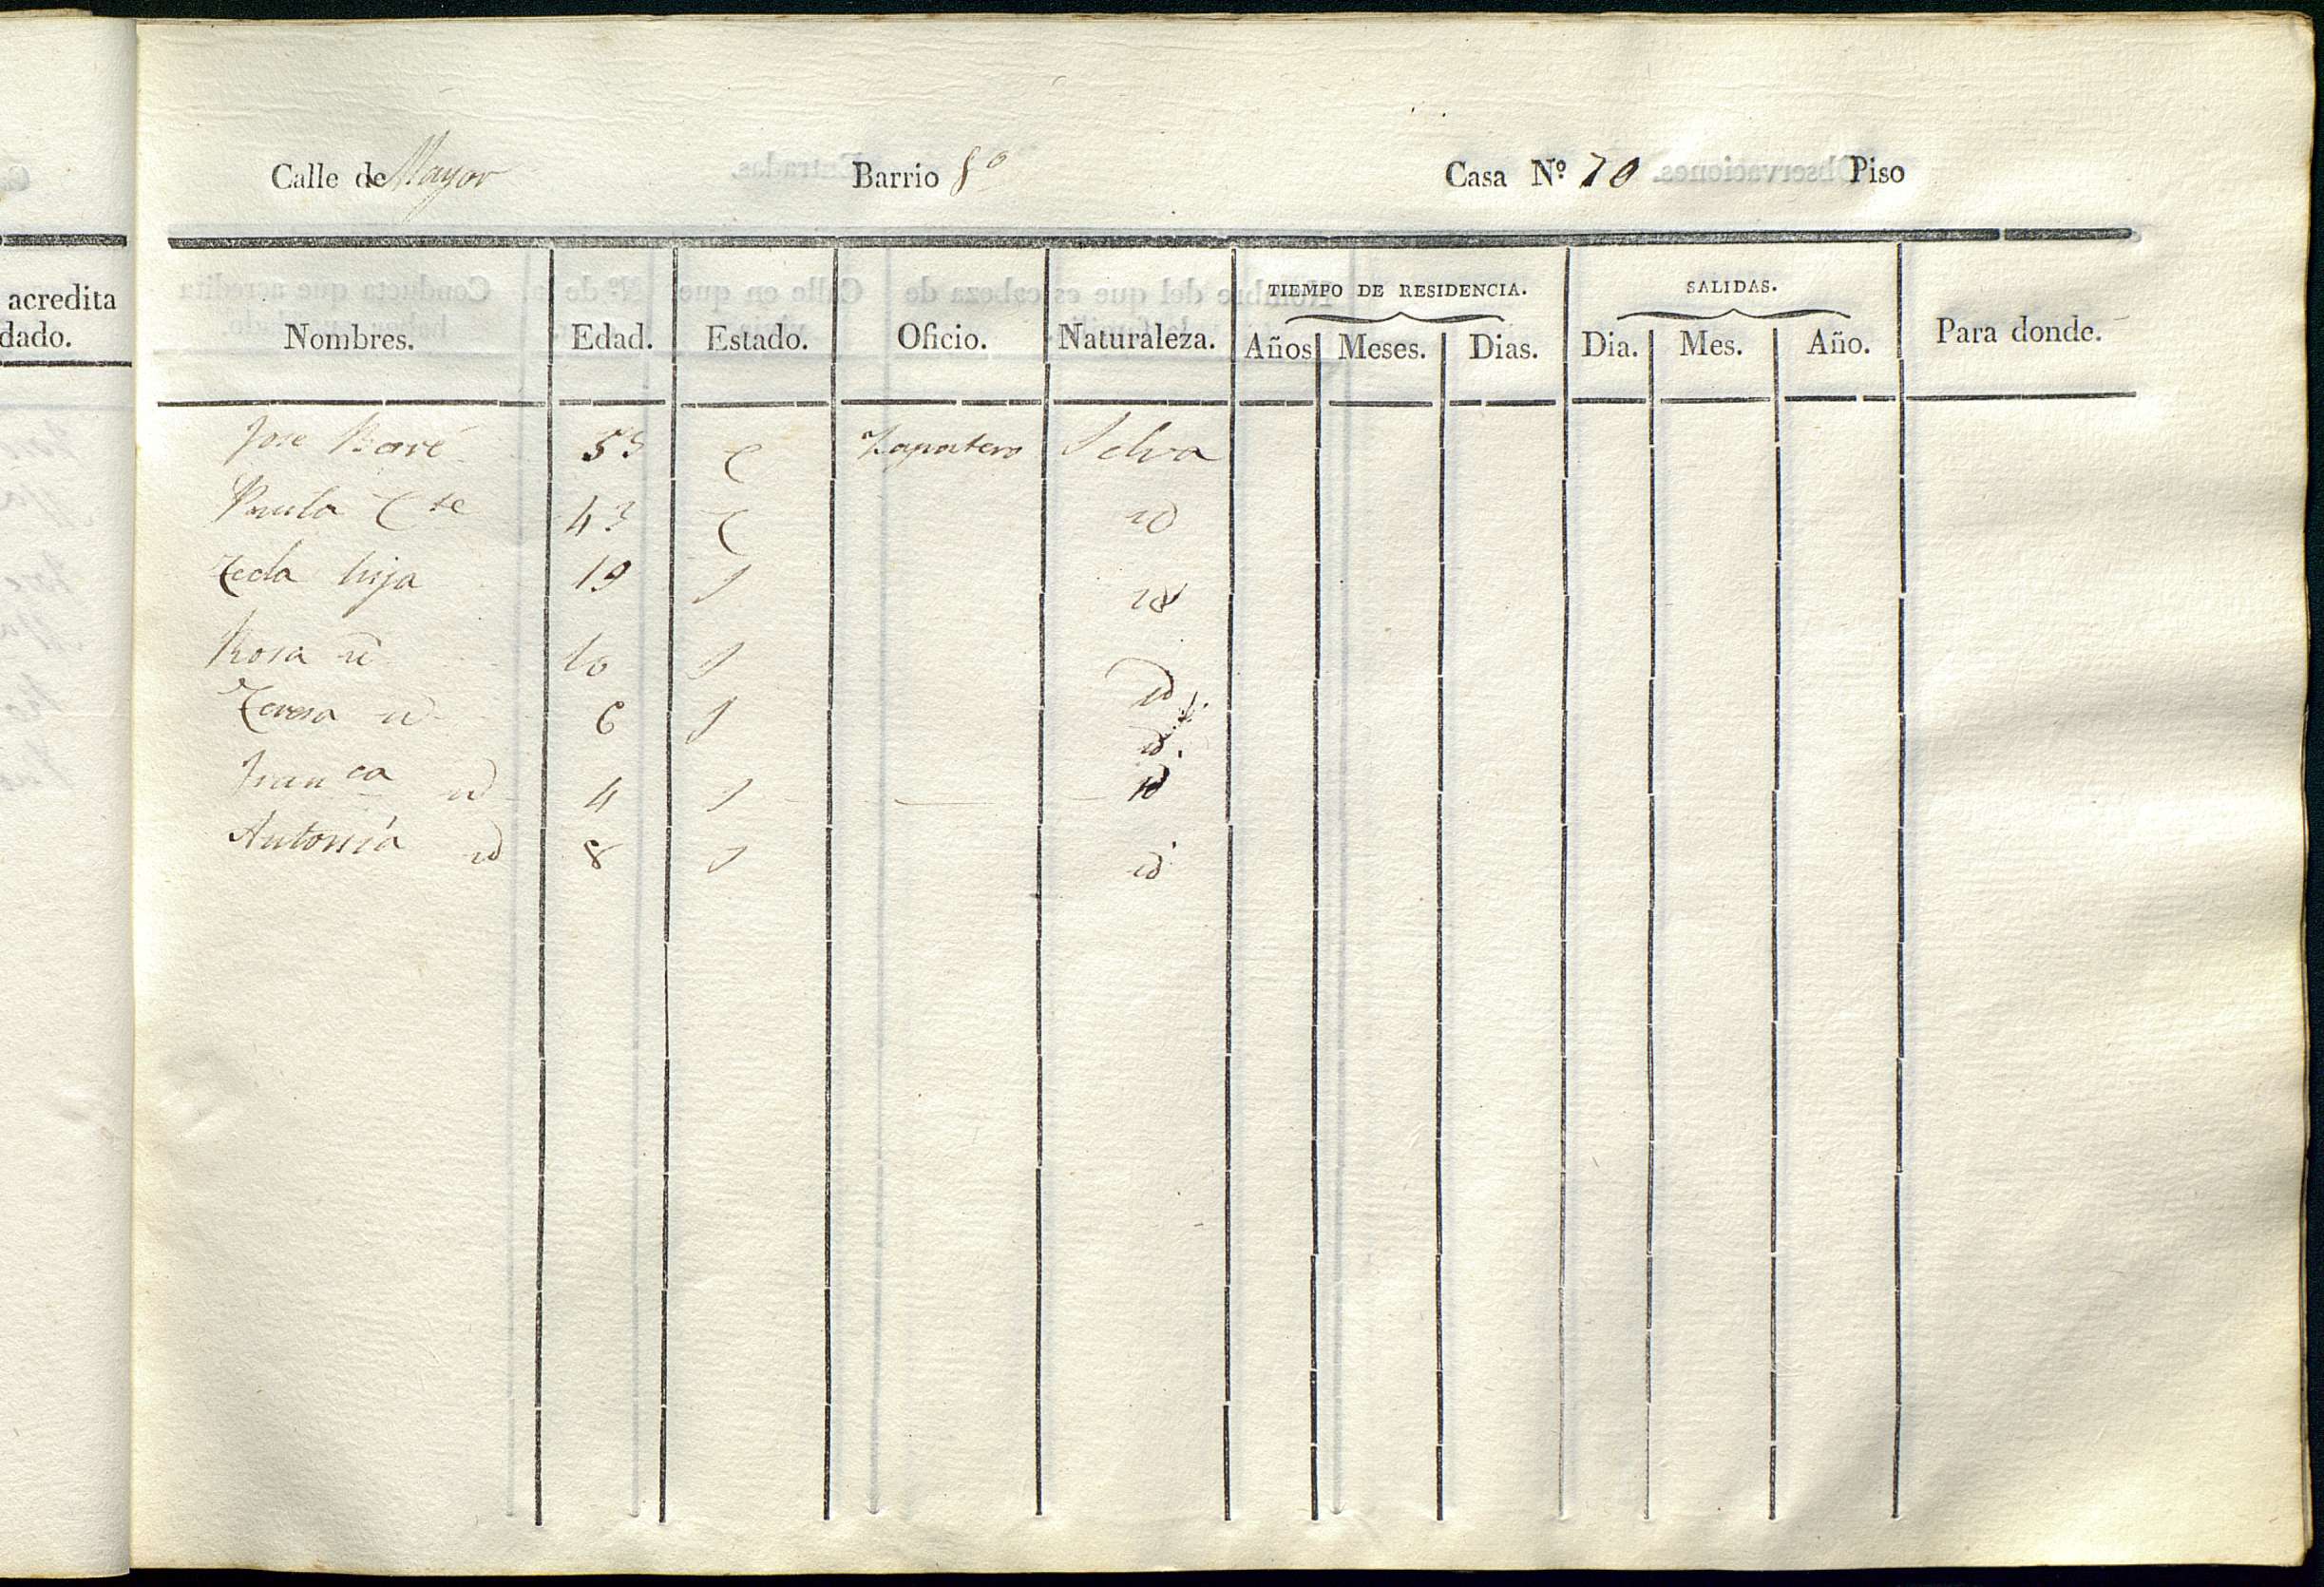 acredita
dado.
Calle de Mayor Barrio 8º Casa Nº 70 Piso
TIEMPO DE RESIDENCIA. SALIDAS.
Nombres. Edad. Estado. Oficio. Naturaleza. Años Meses. Dias. Dia. Mes. Año. Para donde.
Jose 53 C Zapatero Selva
Paula Cte 43 C id
Tecla hija 19 S id
Rosa id 10 S id
Teresa id 6 S id
Franca id 4 S id
Antonia id 8 S id